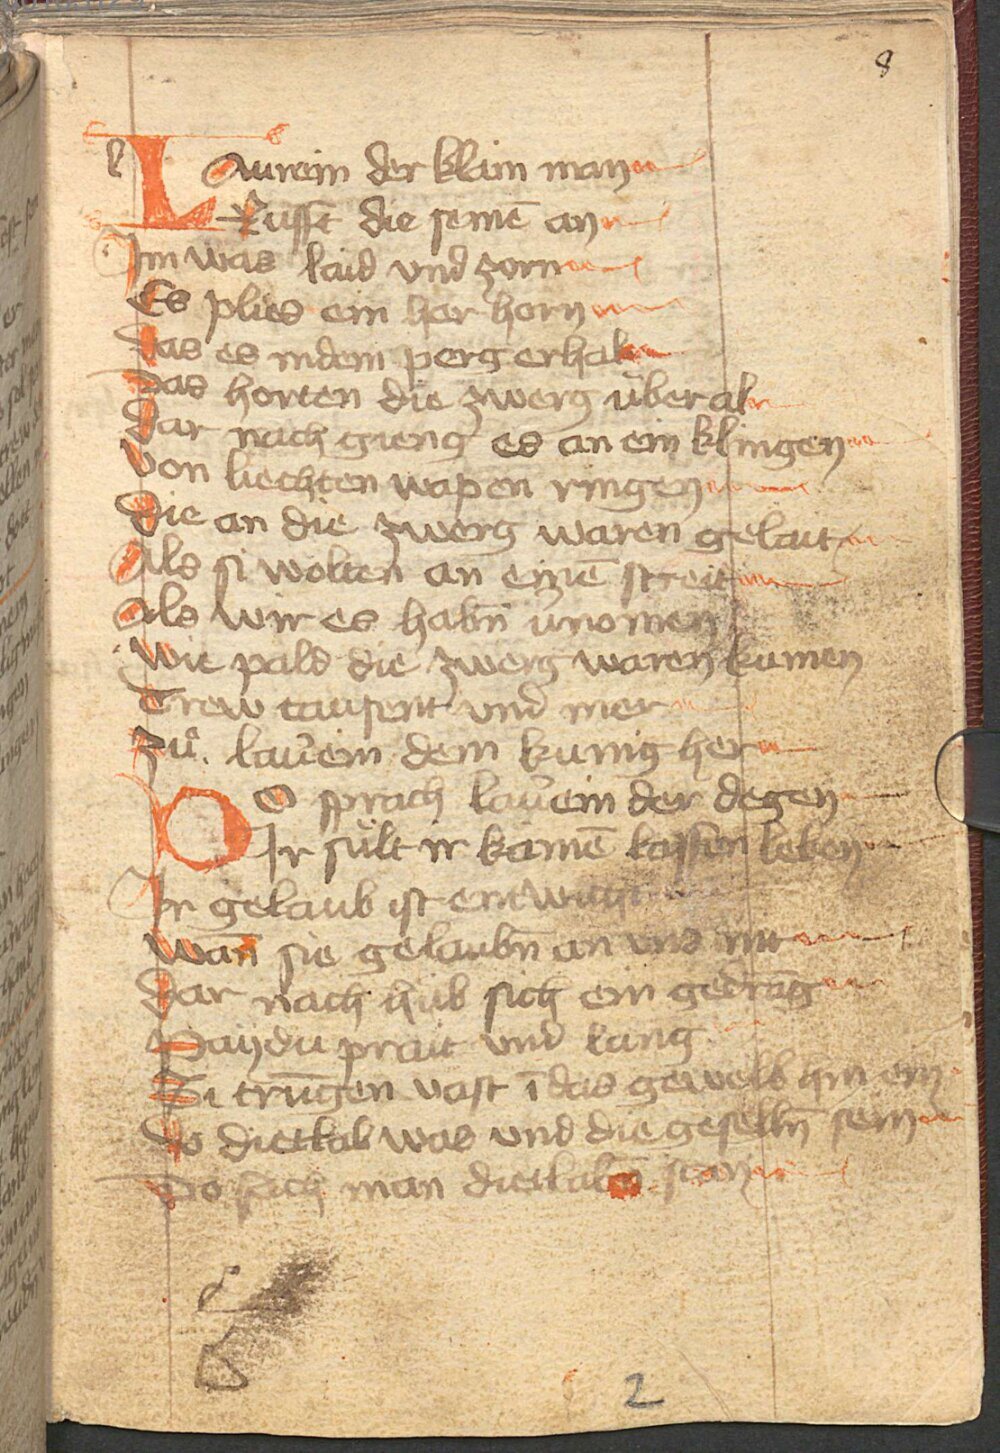 8
Laurein der klain man
Rufft die seinē an
Im was laid vnd zorn
Es plies ein her horn
Das es indem perg erhal
Das horten die zwerg überal
Dar nach gieng es an ein klingen
von liechten wapen ringen
Die an die zwerg waren gelait
Als si wolten an einē streit
Als wir es habn̄ v̄nomen
wie pald die zwerg waren kumen
Drew tausent vnd mer
Zů laurein dem kunig her
DO sprach laurein der degen
Ir sült ir kainē lassen leben
Ir gelaub ist
wan̄ sie gelaubn̄ an vnd nit
Dar nach hub sich ein gedrāg
Paydu prait vnd lang
Si trungen vast ī das gewelb hin ein
Do dietlab was vnd die geselln̄ sein
Do sach man dietlabn̄ stan
2